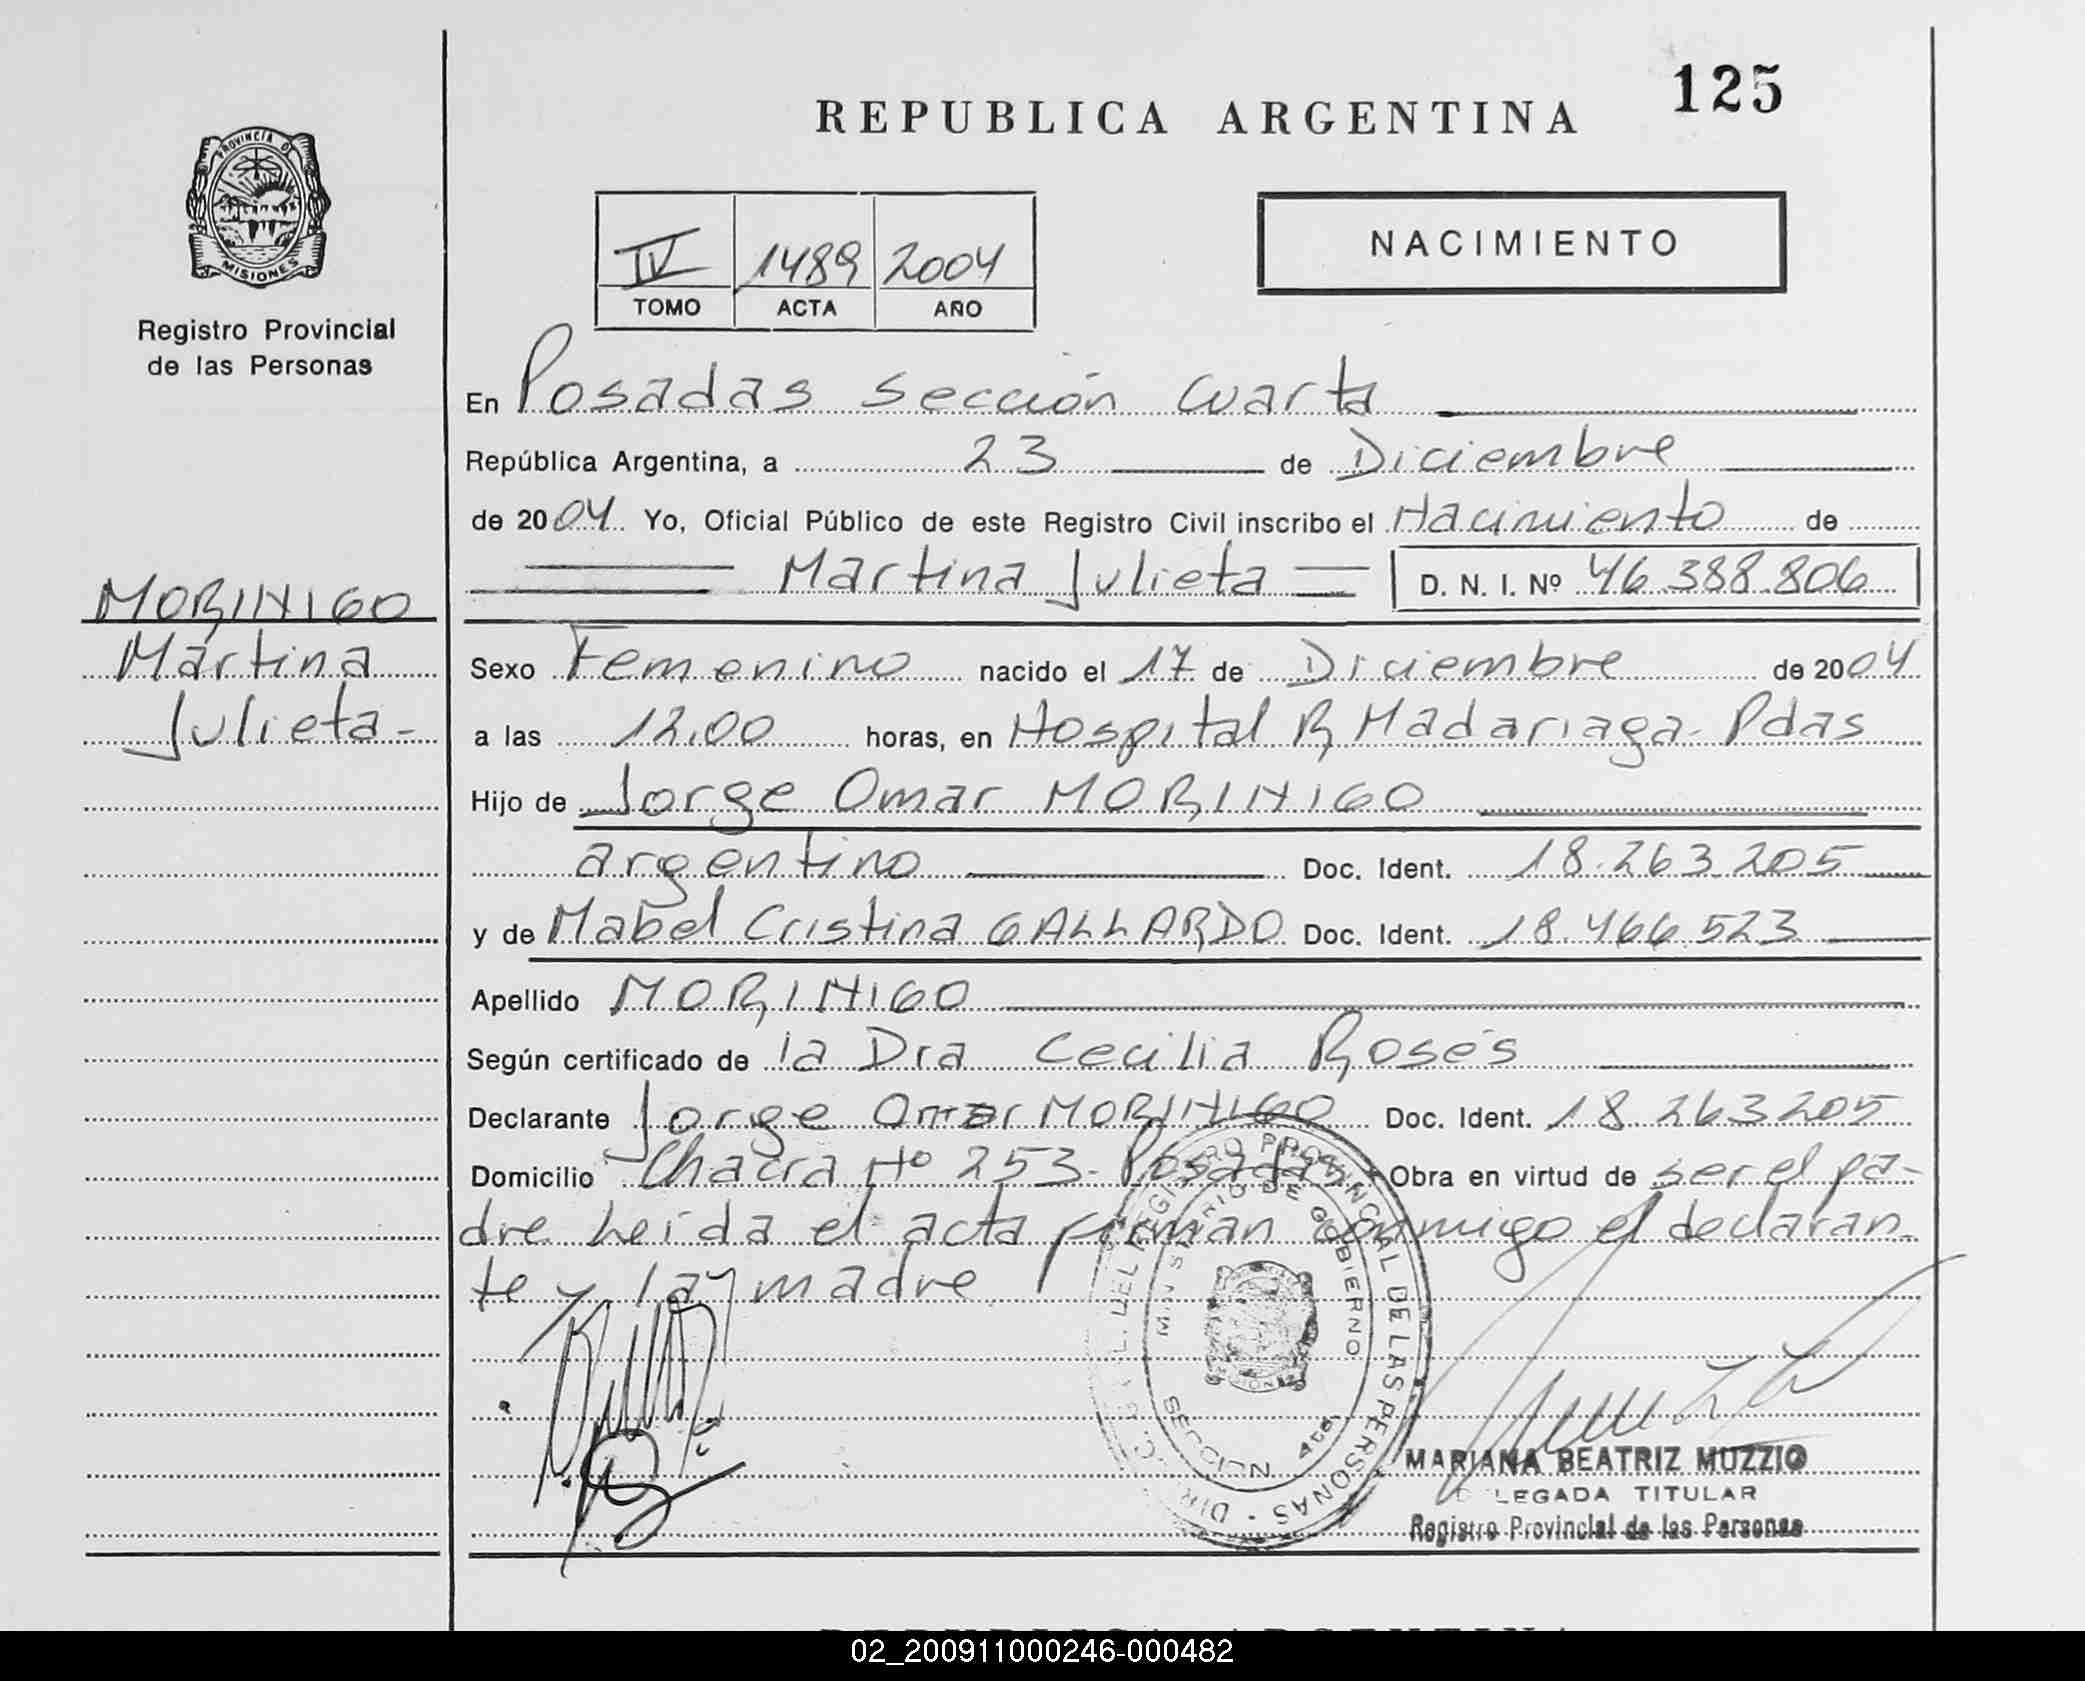 125
REPUBLICA ARGENTINA
PROVINCIA D
MISIONES
Registro Provincial
de las Personas
NACIMIENTO
IV 1489 2004
TOMO ACTA AÑO
En Posadas Sección Cuarta
República Argentina, a 23 de Diciembre
de 2004 Yo, Oficial Público de este Registro Civil inscribo el Nacimiento de
Martina Julieta D. N. I. Nº 46.388.806
MORINIGO
Martina
Julieta-
Sexo Femenino nacido el 17 de Diciembre de 2004
a las 12,00 horas, en Hospital R Madariaga- Pdas
Hijo de Jorge Omar MORINIGO
argentino Doc. Ident. 18.263.205
y de Mabel Cristina GALLARDO Doc. Ident. 18.466.523
Apellido MORINIGO
Según certificado de la Dra Cecilia Rosés
Declarante Jorge Omar MORINIGO Doc. Ident. 18.263205
Domicilio Chacra Nº 253- Posadas Obra en virtud de ser el pa-
dre Leída el acta firman conmigo el declaran-
te y la madre
DEL REGISTRO PROVINCIAL DE LAS PERSONAS - DIR
MINISTERIO DE GOBIERNO
SECCION 4ta.
MARIANA BEATRIZ MUZZIO
LEGADA TITULAR
Registro Provincial de las Personas
REPUBLICA ARGENTINA
02_200911000246-000482